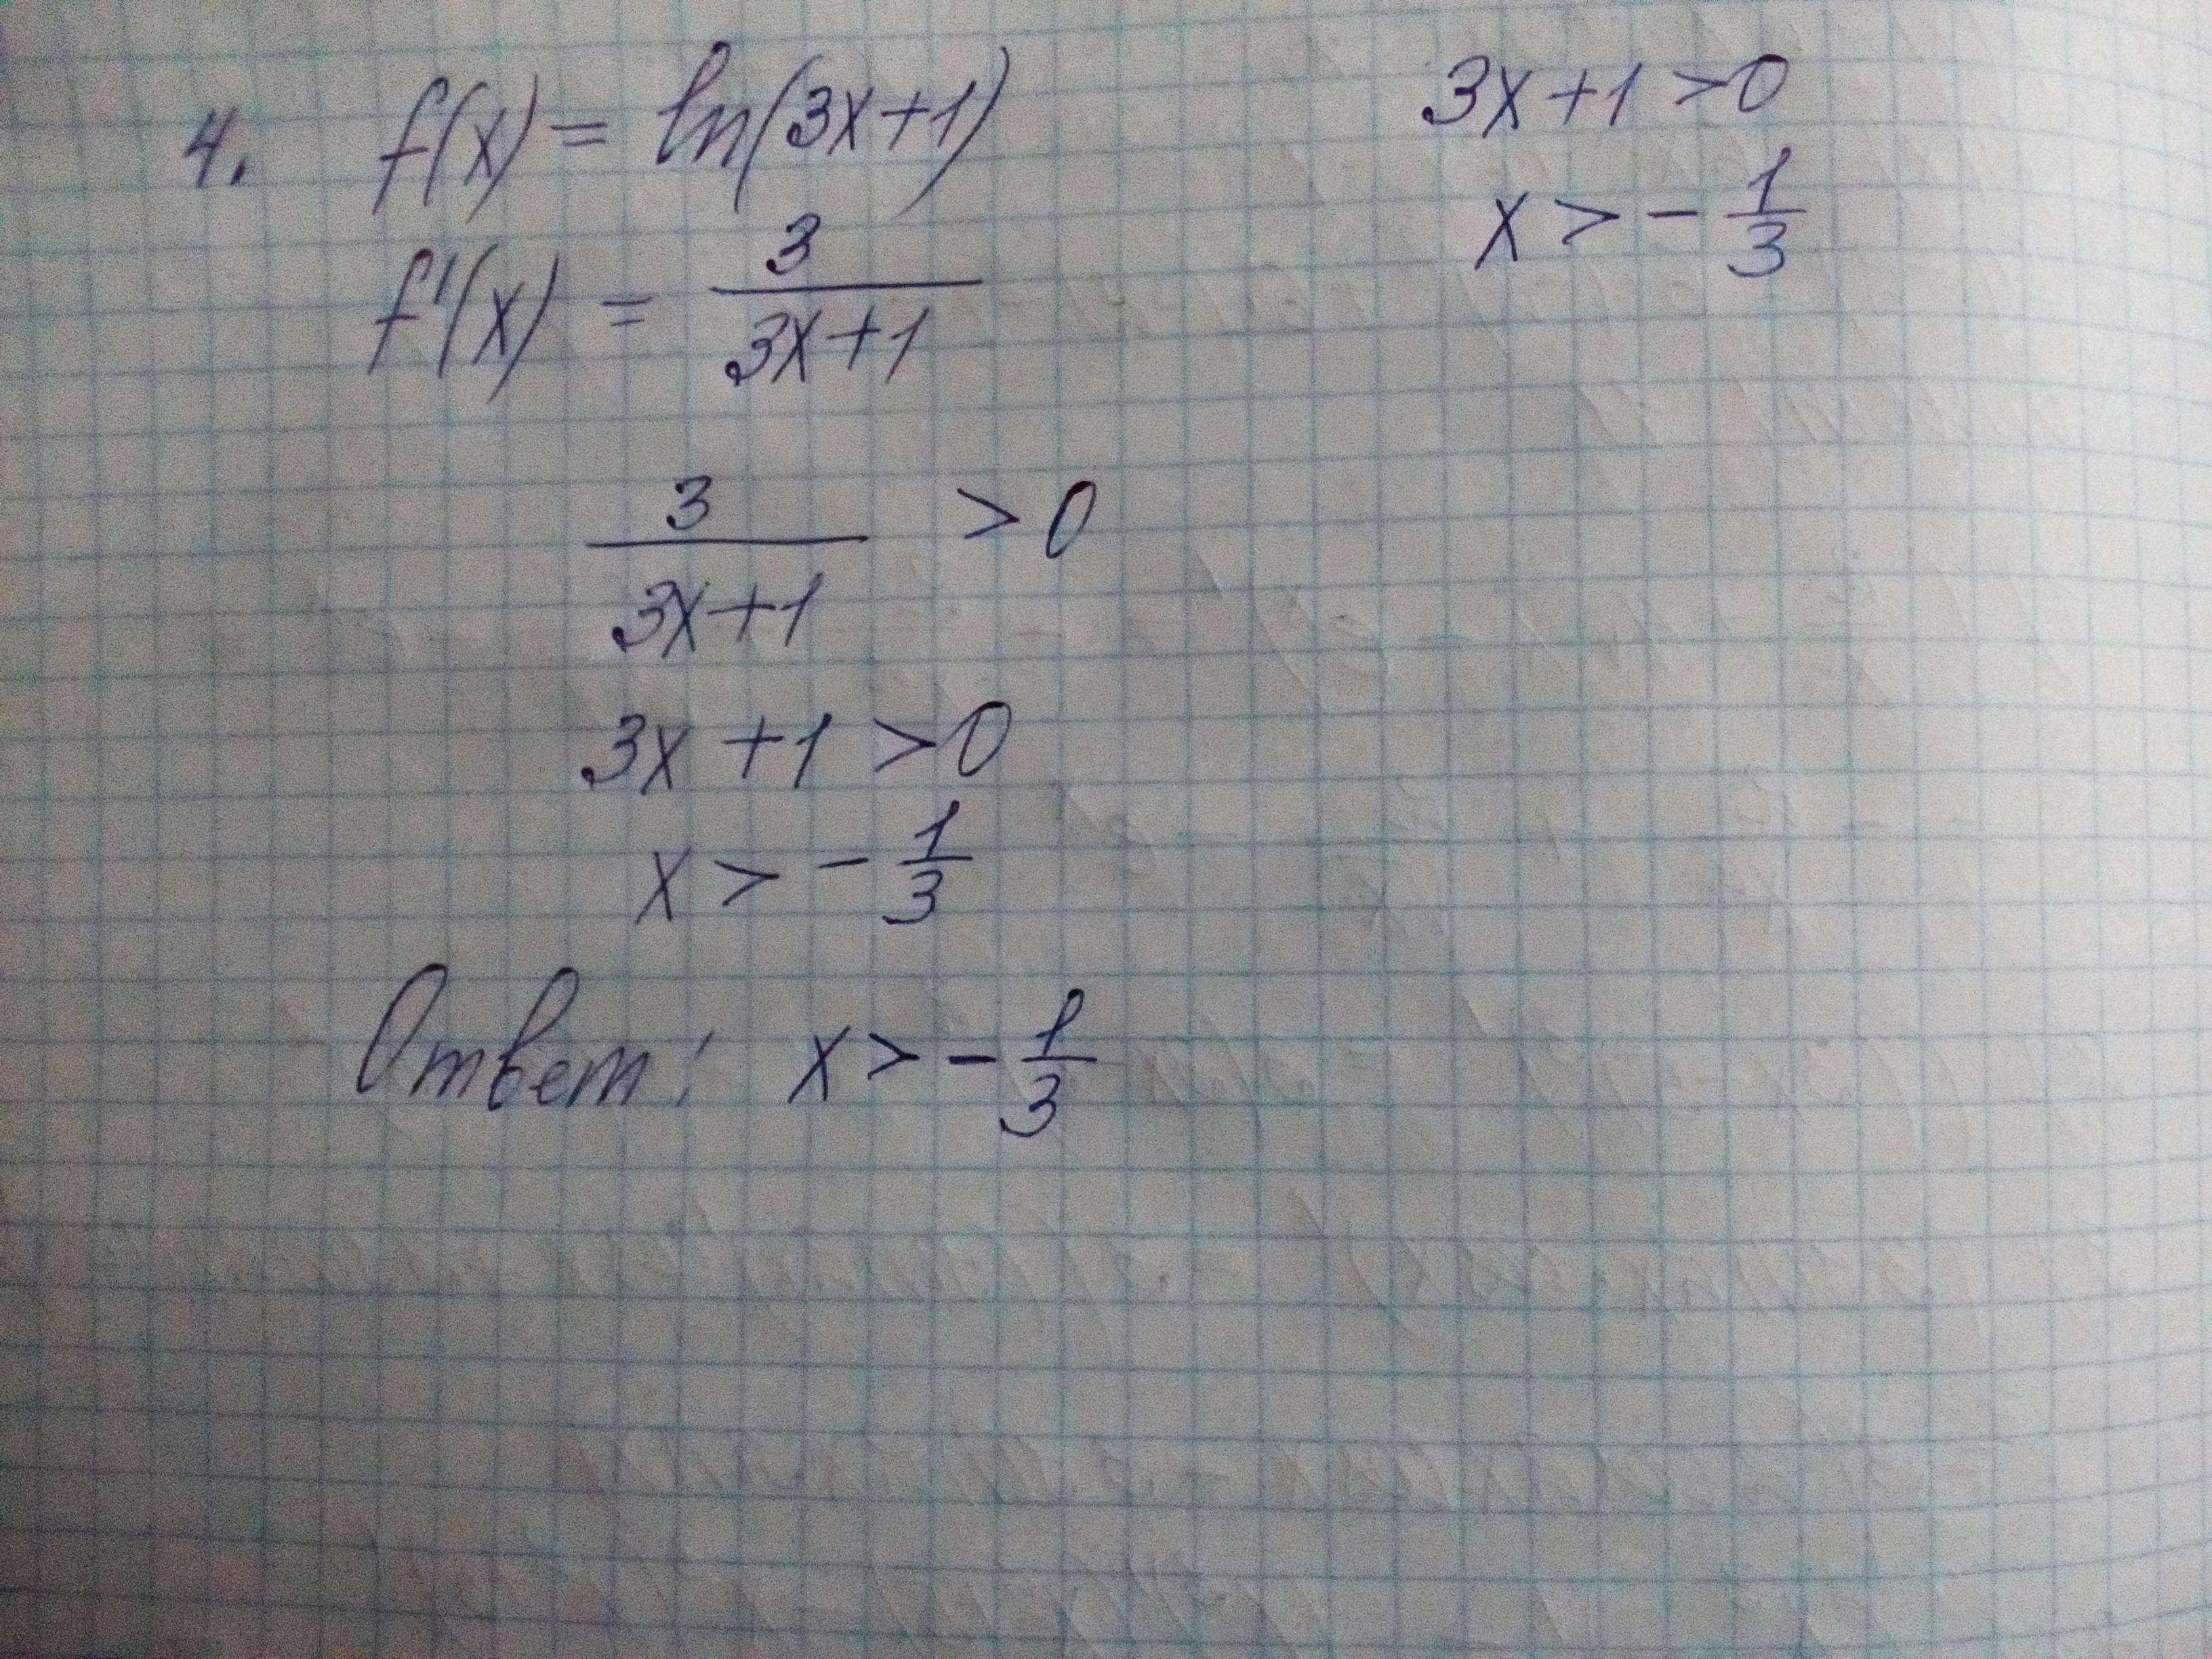 4. f(x) = ln(3x+1)
3x+1>0
x > - 1/3
f'(x) = 3/(3x+1)
3/(3x+1) > 0
3x+1 >0
x > - 1/3
Ответ: x > - 1/3